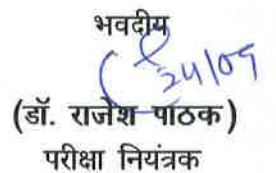 भवदीय
24/09
(डॉ. राजेश पाठक)
परीक्षा नियंत्रक